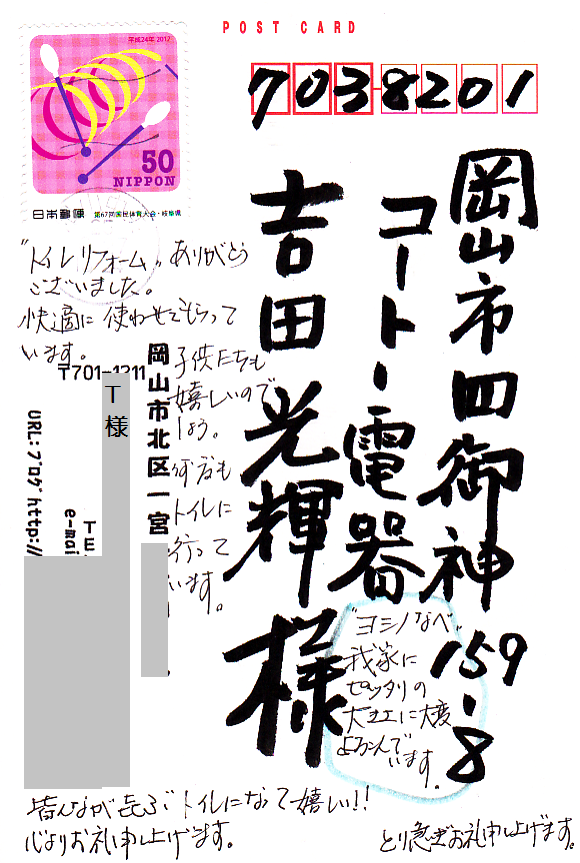 POST CARD
平成24年 2012
50
NIPPON
日本郵便 第67回国民体育大会・岐阜県
7038201
岡山市四御神
159-8
コートー電器
吉田光輝様
"トイレリフォーム"ありがとう
ございました。
快適に使わせてもらって
います。
子供たちも
嬉しいので
しょう。
何度も
トイレに
行って
います。
〒701-1211
岡山市北区一宮
T様
TE
e-mai
URL:ブログhttp://
"ヨシノなべ"
我家に
ピッタリの
大きさに大変
よろこんで
います。
皆んなが喜ぶトイレになって嬉しい!!
心よりお礼申し上げます。
とり急ぎお礼申し上げます。